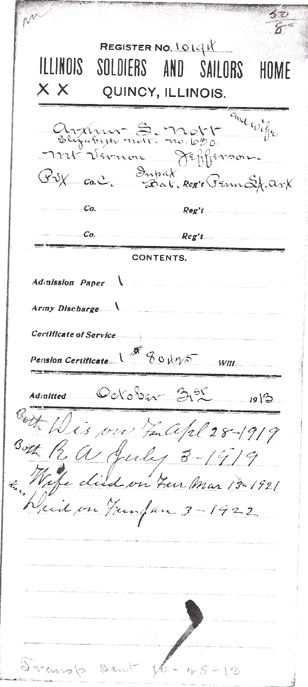 52/8
REGISTER NO. 10194
ILLINOIS SOLDIERS AND SAILORS HOME
X X QUINCY, ILLINOIS.
and wife
Arthur S. Nott
Elizabeth Nott. no. 630.
Mt Vernon Jefferson
Co. C. Bat. Reg't Penn Lt. Art
Co. Reg't
Co. Reg't
CONTENTS.
Admission Paper 1
Army Discharge 1
Certificate of Service
Pension Certificate 1 Will
Admitted October 31st 1913
Both Dis on Fur Apl 28-1919
Both R A July 3-1919
Wife died on Fur Mar 13-1921
Died on Fur Jan 3-1922
Transp sent